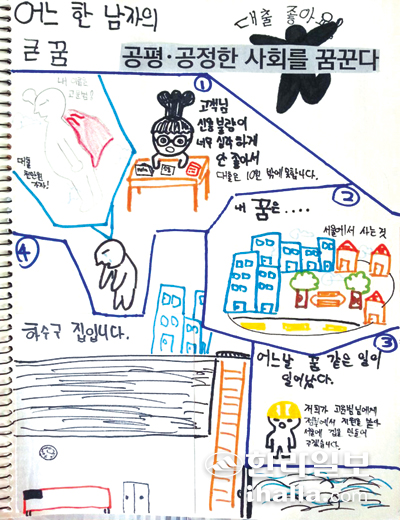 어느 한 남자의
큰 꿈
대출 좋아요
공평·공정한 사회를 꿈꾼다
내 이름은
고길범!
대출
받으러
가자!
①
고객님
신용불량이
너무 심각하게
안 좋아서
대출은 10만 밖에 못합니다.
②
내 꿈은....
서울에서 사는 것
③
어느날 꿈 같은 일이
일어났다.
저희가 고길범님에게
정부에서 지원을 받아
서울에 집을 만들어
주겠습니다.
④
하수구 집입니다.
한라일보
ihalla.com